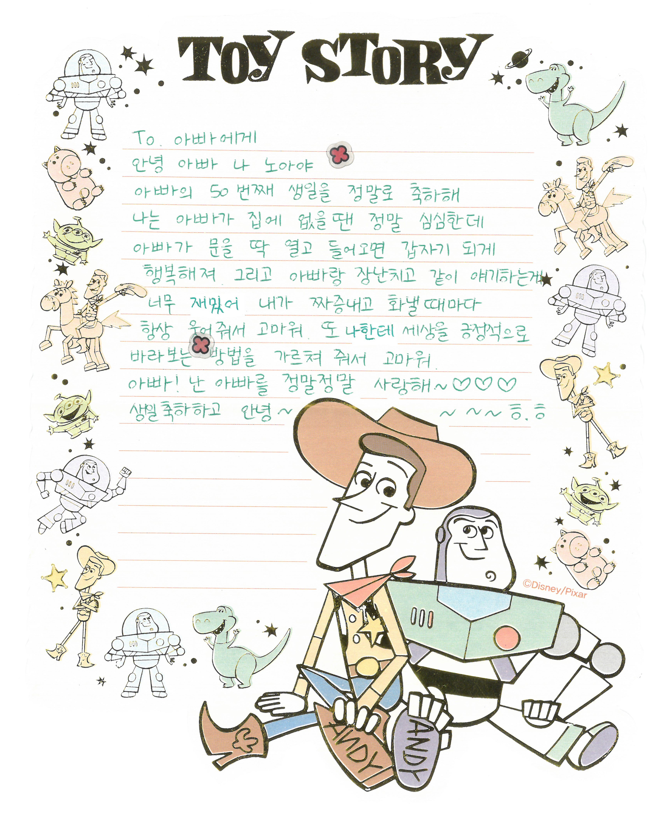 TOY STORY
To. 아빠에게
안녕 아빠 나 노아야
아빠의 50번째 생일을 정말로 축하해
나는 아빠가 집에 없을땐 정말 심심한데
아빠가 문을 딱 열고 들어오면 갑자기 되게
행복해져. 그리고 아빠랑 장난치고 같이 얘기하는게
너무 재밌어 내가 짜증내고 화낼때마다
항상 웃어줘서 고마워. 또 나한테 세상을 긍정적으로
바라보는 방법을 가르쳐 줘서 고마워.
아빠! 난 아빠를 정말정말 사랑해~♡♡♡
생일축하하고 안녕~ ~ ~~ ㅎ.ㅎ
©Disney/Pixar
ANDY
ANDY